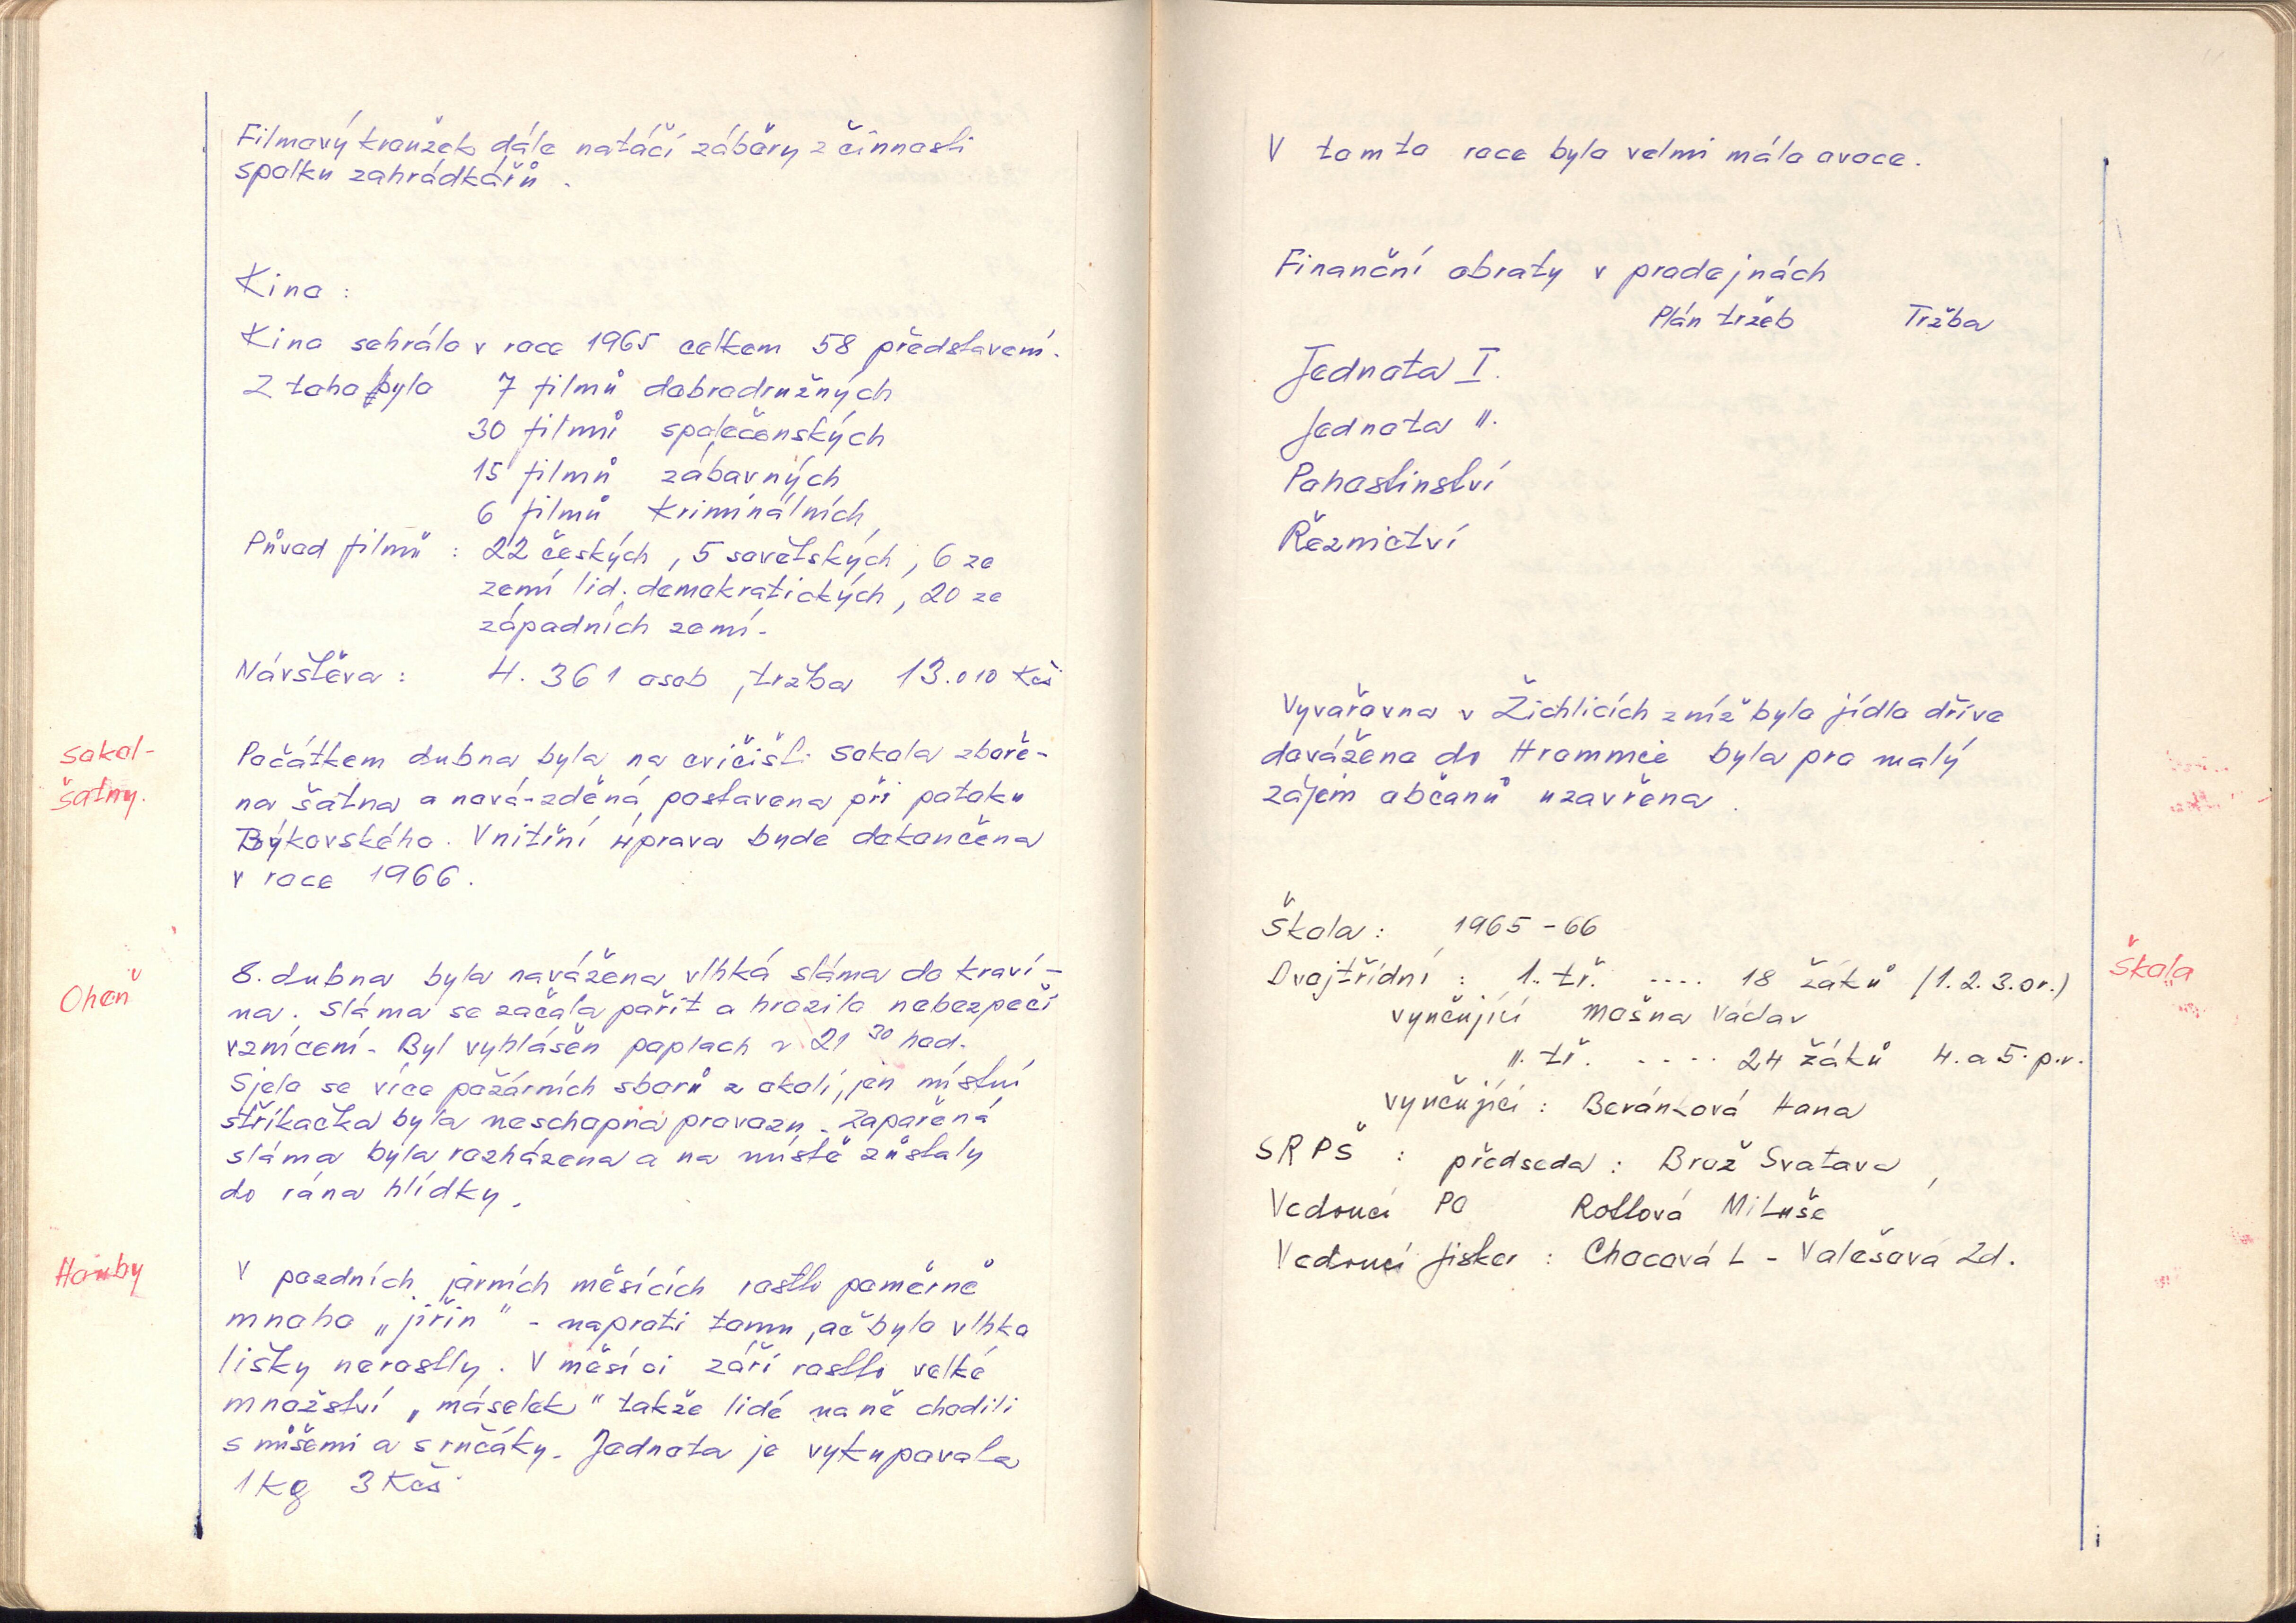 Filmový kroužek dále natáčí záběry z činnosti
spolku zahrádkářů.
Kino:
Kino sehrálo v roce 1965 celkem 58 představení.
Z toho bylo 7 filmů dobrodružných
30 filmů společenských
15 filmů zábavných
6 filmů kriminálních
Původ filmů: 22 českých, 5 sovětských, 6 ze
zemí lid. demokratických, 20 ze
západních zemí.
Návštěva: 4.361 osob, tržba 13.010 Kčs
sokol-
šatny.
Počátkem dubna byla na cvičišti sokola zboře-
na šatna a nová-zděná postavena při potoku
Býkovského. Vnitřní úprava bude dokončena
v roce 1966.
Oheň
8. dubna byla navážena vlhká sláma do kraví-
na. Sláma se začala pařit a hrozilo nebezpečí
vznícení. Byl vyhlášen poplach v 21 30 hod.
Sjelo se více požárních sborů z okolí, jen místní
stříkačka byla neschopna provozu. Zapařená
sláma byla rozházena a na místě zůstaly
do rána hlídky.
Houby
V pozdních jarních měsících rostlo poměrně
mnoho „jiřin" - naproti tomu, ač bylo vlhko
lišky nerostly. V měsíci září rostlo velké
množství „máselek" takže lidé na ně chodili
s nůšemi a s ručáky. Jednota je vykupovala
1 kg 3 Kčs
V tomto roce bylo velmi málo ovoce.
Finanční obraty v prodejnách
Plán tržeb Tržba
Jednota I.
Jednota II.
Pohostinství
Řeznictví
Vyvařovna v Žichlicích z níž bylo jídlo dříve
dováženo do Hromnice byla pro malý
zájem občanů uzavřena.
Škola
Škola: 1965-66
Dvojtřídní: 1. tř. .... 18 žáků (1.2.3.or.)
vyučující Mašna Václav
II. tř. .... 24 žáků 4. a 5. p.r.
vyučující: Beránková Hana
SRPŠ: předseda: Brož Svatava,
Vedoucí PO Rottová Miluše
Vedoucí jisker: Chocová L - Valešová Zd.